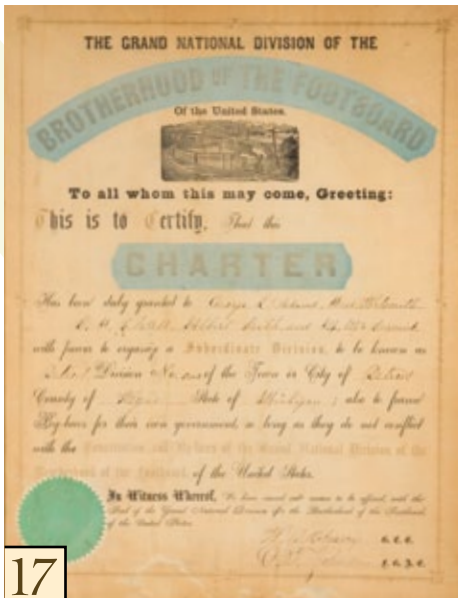 THE GRAND NATIONAL DIVISION OF THE
BROTHERHOOD OF THE FOOTBOARD
Of the United States.
To all whom this may come, Greeting:
This is to Certify, That this
CHARTER
Has been duly granted to George
with power to organize a Subordinate Division, to be known as
Division No. of the Town or City of Detroit
County of State of Michigan; also to
By-laws for their own government, so long as they do not conflict
with the Constitution and By-laws of the Grand National Division of the
Brotherhood of the Footboard, of the United States.
In Witness Whereof, We have caused our names to be affixed, with the
Seal of the Grand National Division of the Brotherhood of the Footboard,
of the United States.
G. C. E.
17